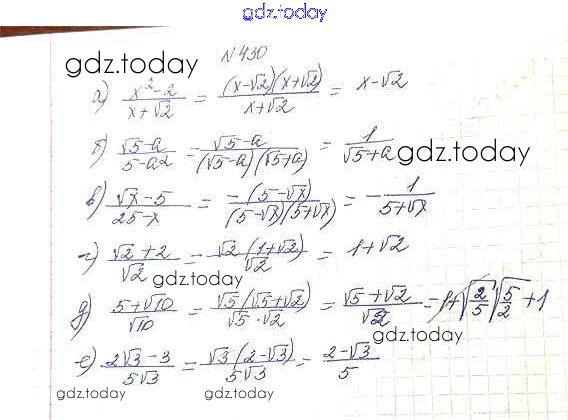 gdz.today
N 430
gdz.today
а) x²-2 / x+√2 = (x-√2)(x+√2) / x+√2 = x-√2
б) √5-a / 5-a² = √5-a / (√5-a)(√5+a) = 1 / √5+a
gdz.today
в) √x-5 / 25-x = -(5-√x) / (5-√x)(5+√x) = - 1 / 5+√x
г) √2+2 / √2 = √2(1+√2) / √2 = 1+√2
gdz.today
д) 5+√10 / √10 = √5(√5+√2) / √5·√2 = √5+√2 / √2 = √5/2 + 1
gdz.today
е) 2√3-3 / 5√3 = √3(2-√3) / 5√3 = 2-√3 / 5
gdz.today
gdz.today